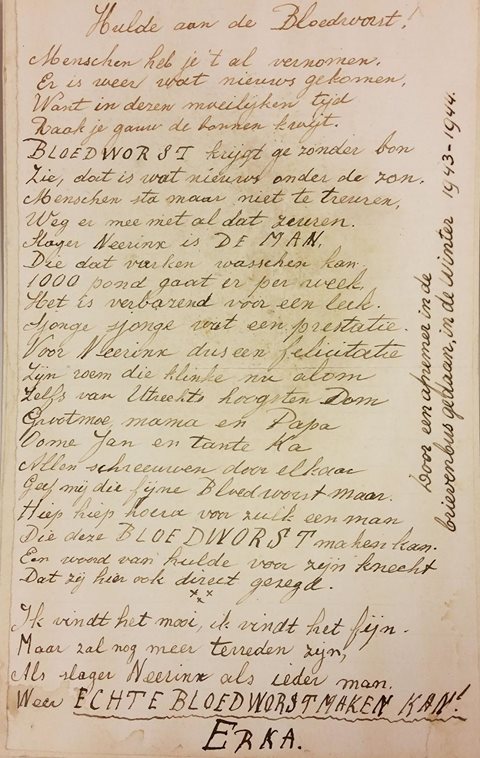 Hulde aan de Bloedworst!
Menschen heb je 't al vernomen,
Er is weer wat nieuws gekomen,
Want in dezen moeilijken tijd
Raak je gauw de bonnen kwijt.
BLOEDWORST krijgt ge zonder bon
Zie, dat is wat nieuws onder de zon.
Menschen sta maar niet te treuren,
Weg er mee met al dat zeuren.
Slager Neerinx is DE MAN.
Die dat varken wasschen kan.
1000 pond gaat er per week,
Het is verbazend voor een leek.
Sjonge sjonge wat een prestatie.
Voor Neerinx dus een felicitatie
Zijn roem die klinke nu alom
Zelfs van Utrechts hoogsten Dom
Grootmoe, mama en Papa
Oome Jan en tante Ka
Allen schreeuwen door elkaar
Geef mij die fijne Bloedworst maar.
Hiep hiep hoera voor zulk een man
Die deze BLOEDWORST maken kan.
Een woord van hulde voor zijn knecht
Dat zij hier ook direct gezegd.
x x x
Ik vindt het mooi, ik vindt het fijn.
Maar zal nog meer tevreden zijn,
Als slager Neerinx als ieder man.
Weer ECHTE BLOEDWORST MAKEN KAN!
ERKA.
Door een afnemer in de
brievenbus gedaan, in de Winter 1943-1944.